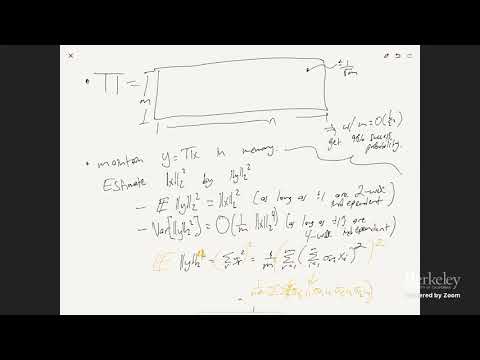 • Π =
m
n
± 1/√m
w/ m = O(1/ε²)
get 99% success
probability.
• maintain y = Πx in memory.
Estimate ‖x‖₂² by ‖y‖₂²
– E ‖y‖₂² = ‖x‖₂² (as long as ±1 are 2-wise
independent)
– Var[‖y‖₂²] = O(1/m ‖x‖₂⁴) (as long as ±1's are
4-wise independent)
E ‖y‖₂² = Σ = 1/m Σ ( Σ )²
Berkeley
UNIVERSITY OF CALIFORNIA
Powered by Zoom